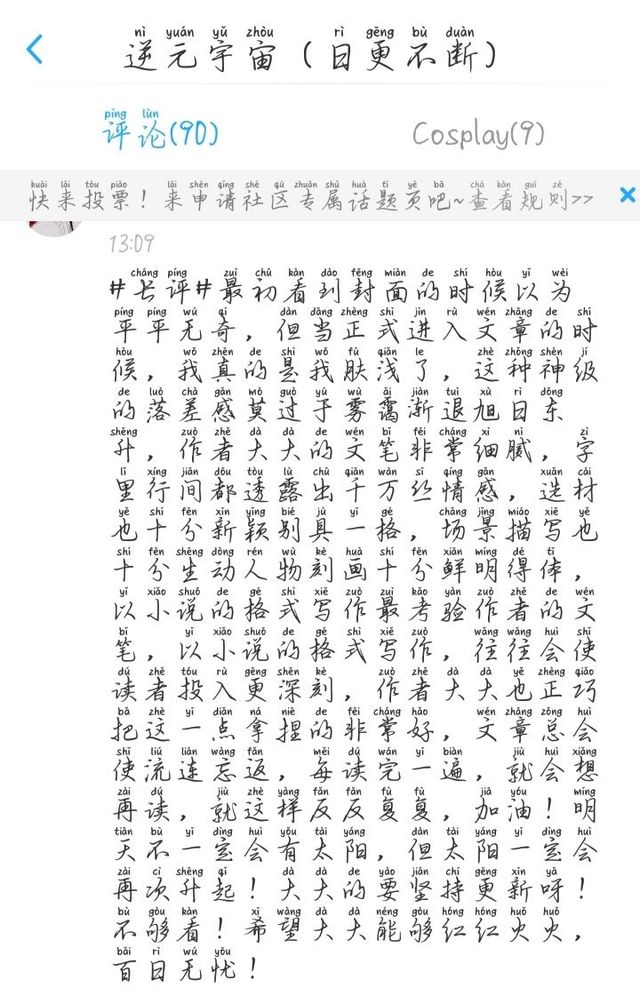 nì yuán yǔ zhòu rì gēng bù duàn
逆元宇宙（日更不断）
píng lùn
评论(90) Cosplay(9)
kuài lái tóu piào lái shēn qǐng shè qū zhuān shǔ huà tí yè bà chá kàn guī zé
快来投票！来申请社区专属话题页吧~查看规则>>
13:09
cháng píng zuì chū kàn dào fēng miàn de shí hòu yǐ wéi
#长评#最初看到封面的时候以为
píng píng wú qí dàn dāng zhèng shì jìn rù wén zhāng de shí
平平无奇，但当正式进入文章的时
hòu wǒ zhēn de shì wǒ fū qiǎn le zhè zhǒng shén jí
候，我真的是我肤浅了，这种神级
de luò chā gǎn mò guò yú wù ǎi jiàn tuì xù rì dōng
的落差感莫过于雾霭渐退旭日东
shēng zuò zhě dà dà de wén bǐ fēi cháng xì nì zì
升，作者大大的文笔非常细腻，字
lǐ háng jiān dōu tòu lù chū qiān wàn sī qíng gǎn xuǎn cái
里行间都透露出千万丝情感，选材
yě shí fēn xīn yǐng bié jù yī gé chǎng jǐng miáo xiě yě
也十分新颖别具一格，场景描写也
shí fēn shēng dòng rén wù kè huà shí fēn xiān míng dé tǐ
十分生动人物刻画十分鲜明得体，
yǐ xiǎo shuō de gé shì xiě zuò zuì kǎo yàn zuò zhě de wén
以小说的格式写作最考验作者的文
bǐ yǐ xiǎo shuō de gé shì xiě zuò wǎng wǎng huì shǐ
笔，以小说的格式写作，往往会使
dú zhě tóu rù gèng shēn kè zuò zhě dà dà yě zhèng qiǎo
读者投入更深刻，作者大大也正巧
bǎ zhè yī diǎn ná niē de fēi cháng hǎo wén zhāng zǒng huì
把这一点拿捏的非常好，文章总会
shǐ liú lián wàng fǎn měi dú wán yī biàn jiù huì xiǎng
使流连忘返，每读完一遍，就会想
zài dú jiù zhè yàng fǎn fǎn fù fù jiā yóu míng
再读，就这样反反复复，加油！明
tiān bù yī dìng huì yǒu tài yáng dàn tài yáng yī dìng huì
天不一定会有太阳，但太阳一定会
zài cì shēng qǐ dà dà de yào jiān chí gēng xīn ya
再次升起！大大的要坚持更新呀！
bù gòu kàn xī wàng dà dà néng gòu hóng hóng huǒ huǒ
不够看！希望大大能够红红火火，
bǎi rì wú yōu
百日无忧！